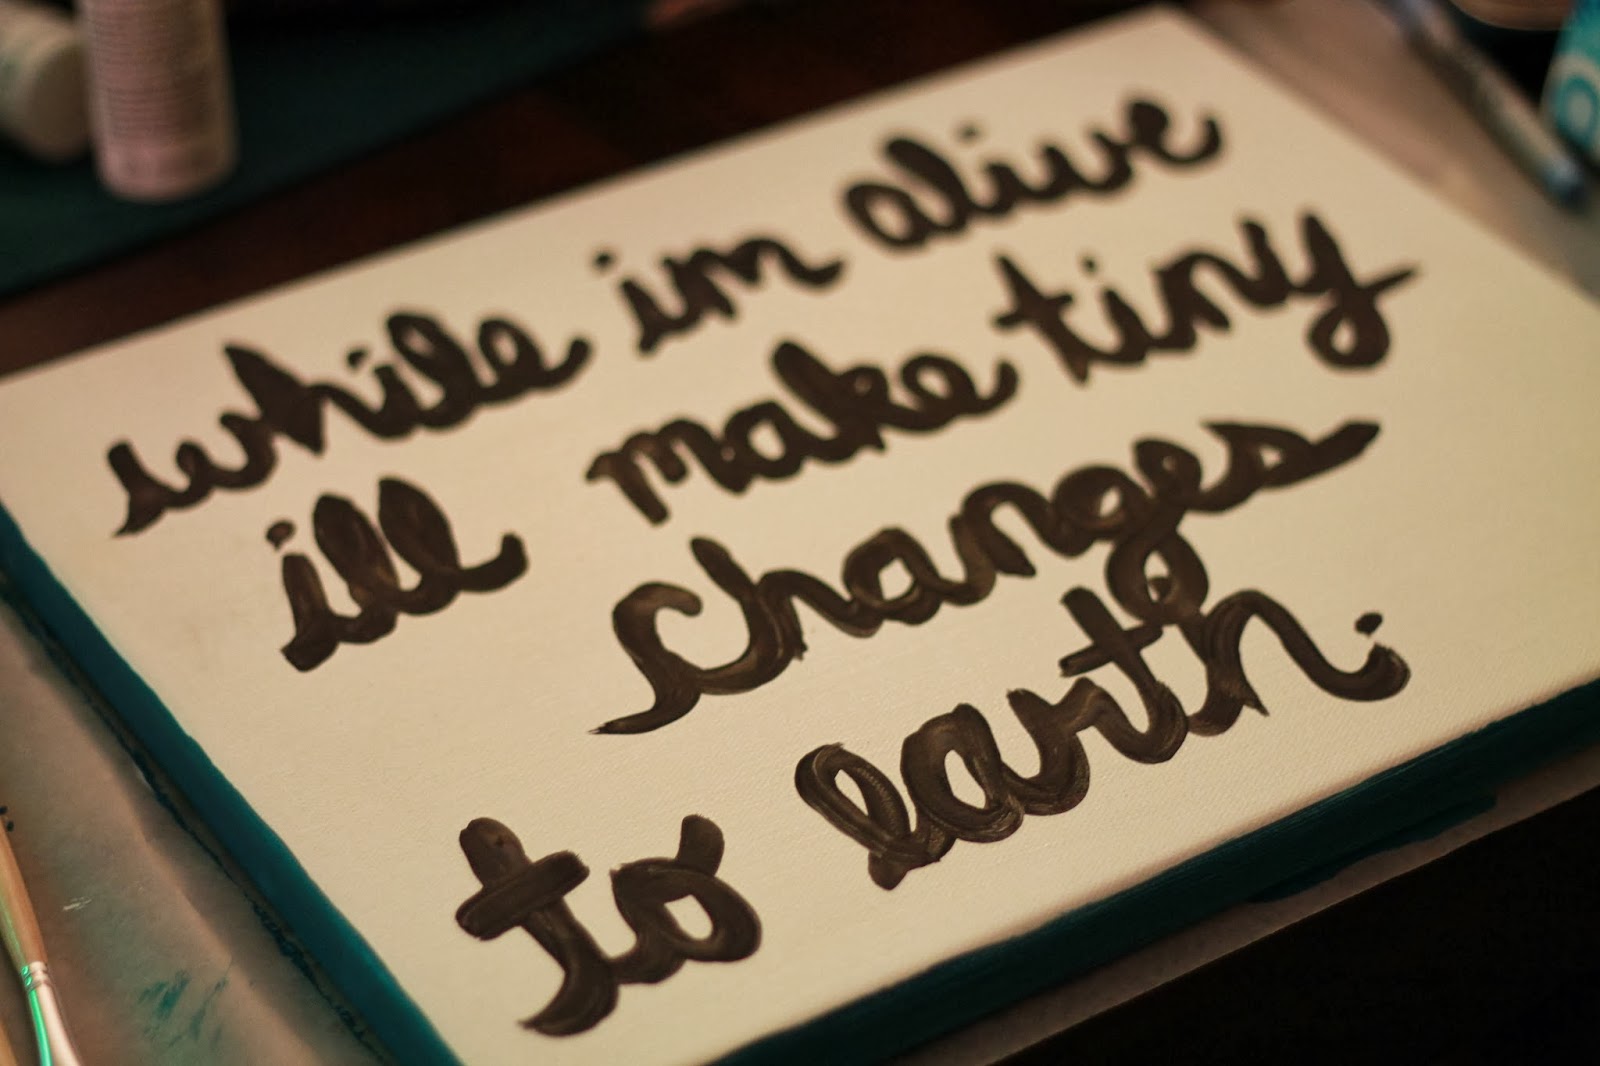 while im alive
ill make tiny
changes
to earth.